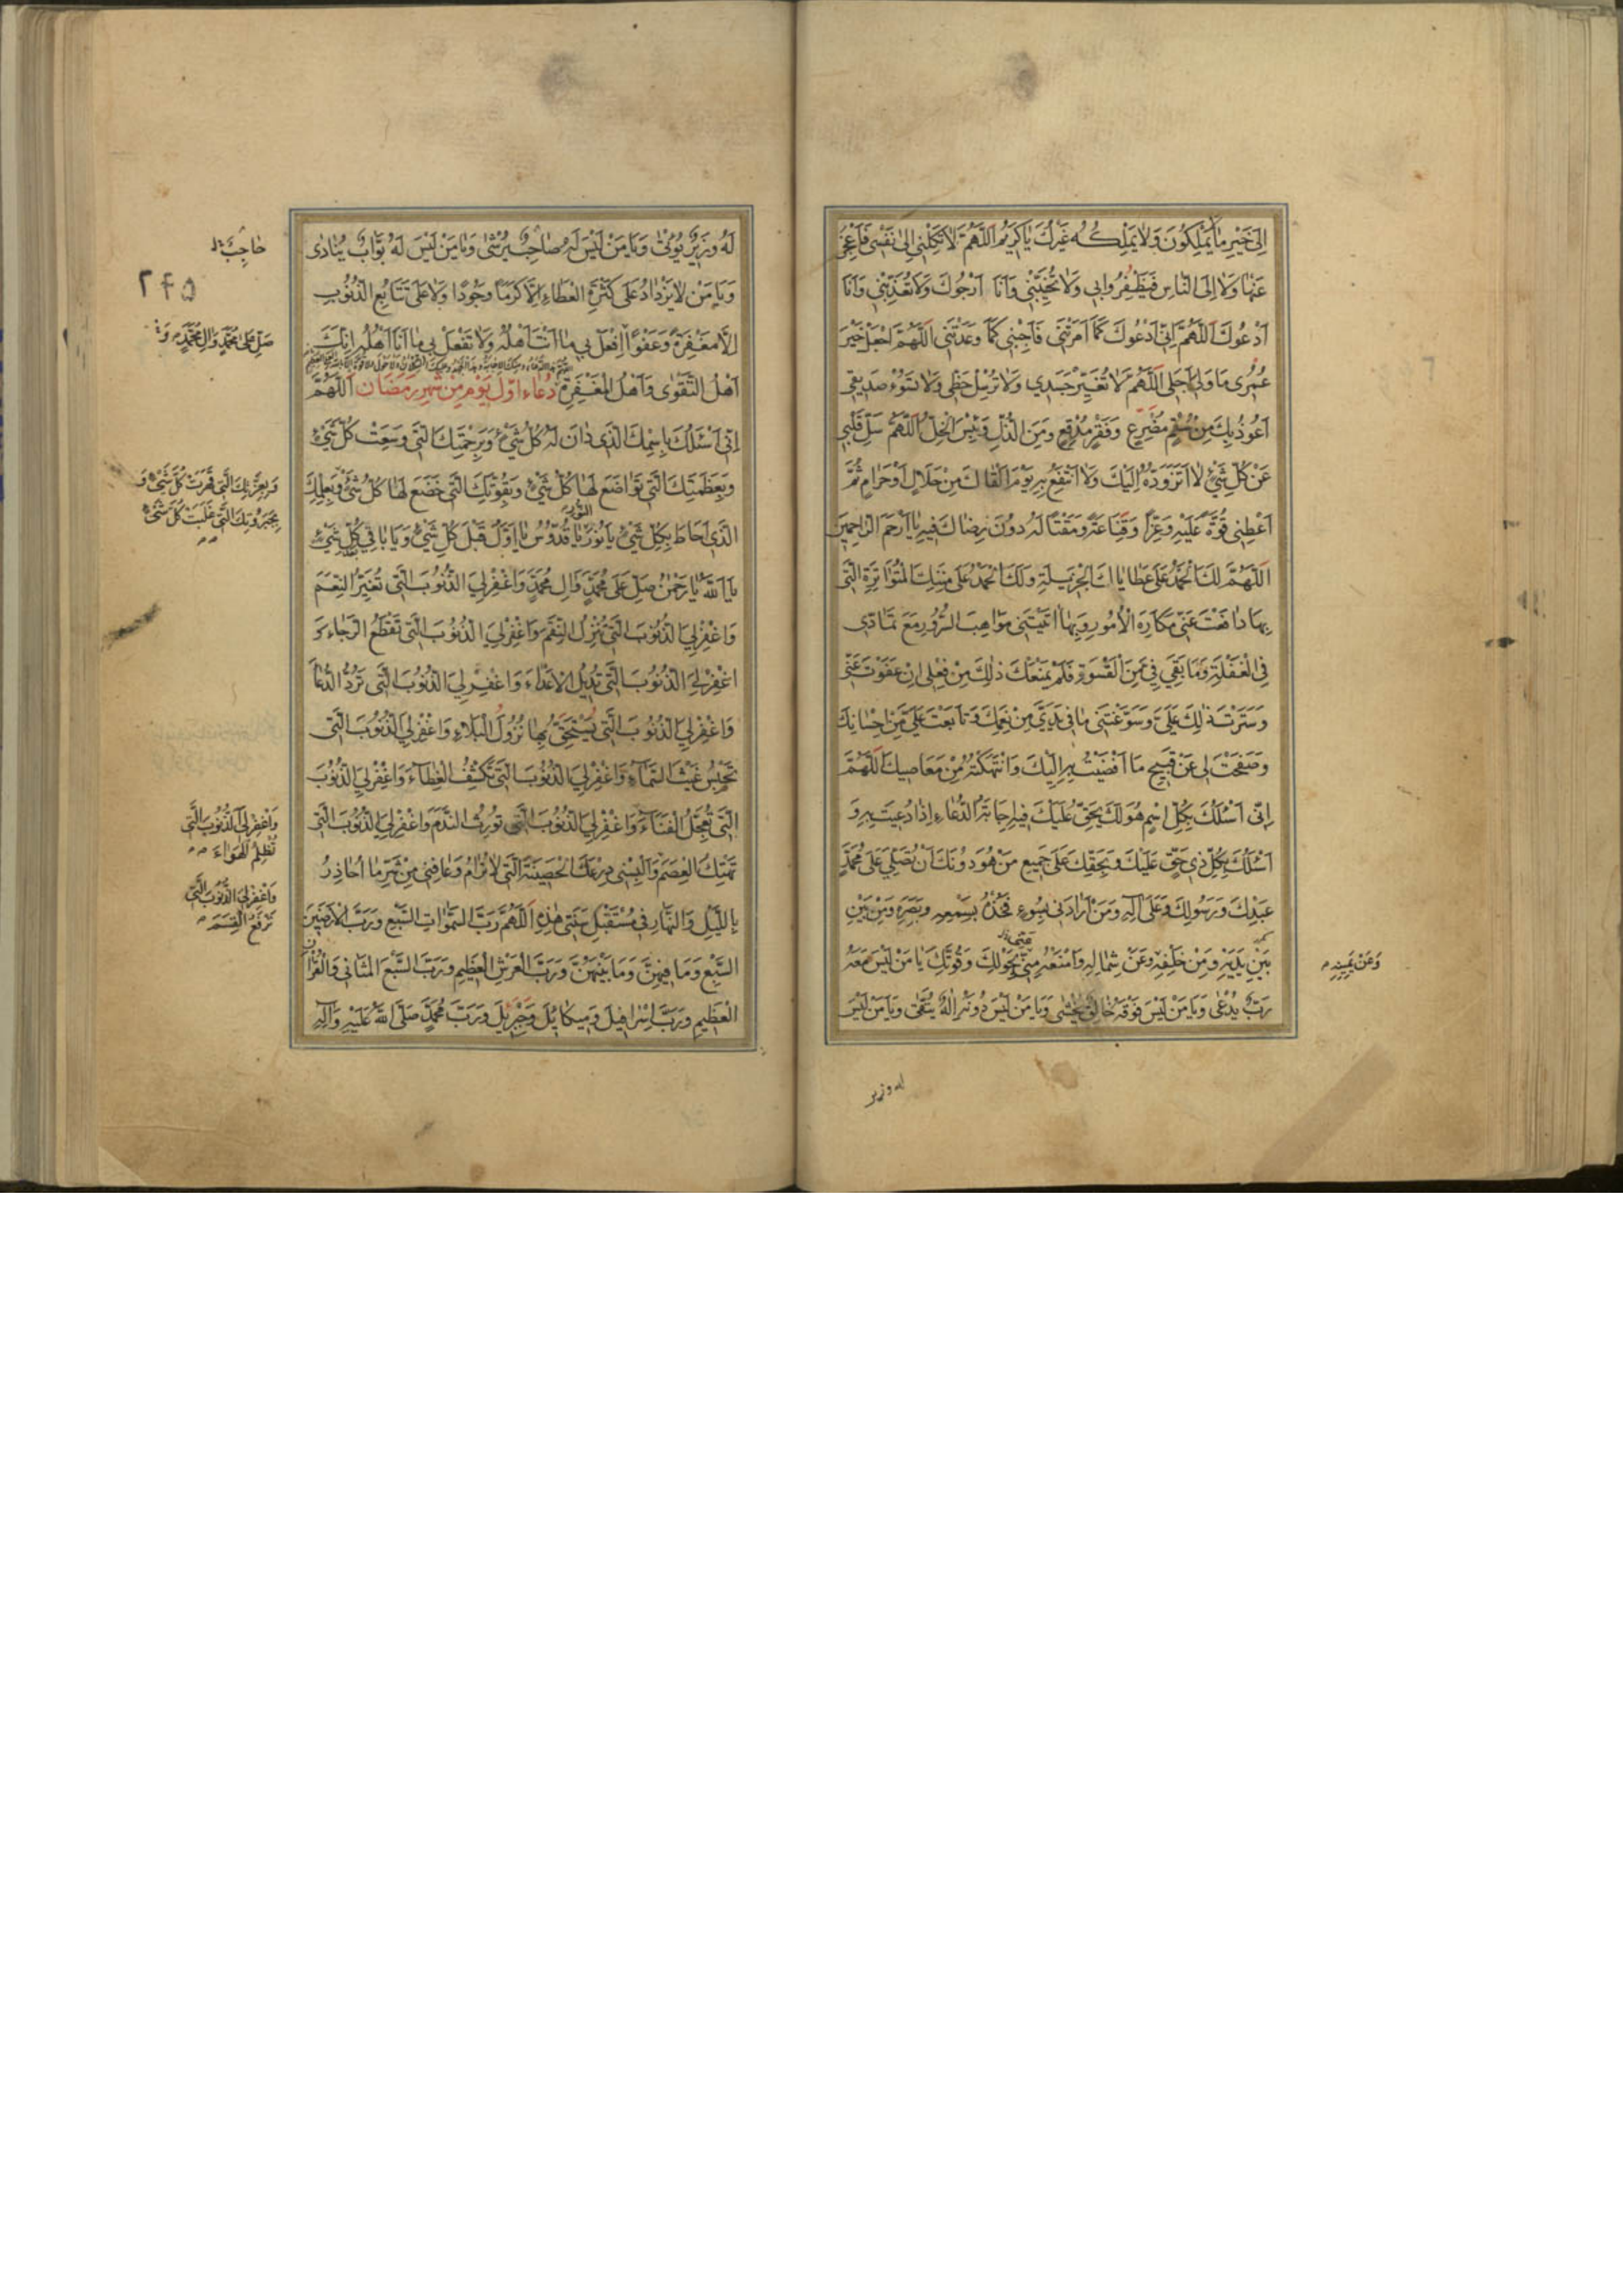 اِلىٰ خَيْرِ مَا يَمْلِكُونَ وَلَا يَمْلِكُهُ غَيْرُكَ يَا كَرِيمُ اَللّٰهُمَّ لَا تَكِلْنِي اِلىٰ نَفْسِي فَاَعْجِزَ
عَنْهَا وَلَا اِلَى النَّاسِ فَيَظْفِرُوا بِي وَلَا تُخَيِّبْنِي وَاَنَا اَرْجُوكَ وَلَا تُعَذِّبْنِي وَاَنَا
اَدْعُوكَ اَللّٰهُمَّ اِنِّي اَدْعُوكَ كَمَا اَمَرْتَنِي فَاَجِبْنِي كَمَا وَعَدْتَنِي اَللّٰهُمَّ اجْعَلْ خَيْرَ
عُمُرِي مَا وَلِيَ اَجَلِي اَللّٰهُمَّ لَا تُغَيِّرْ جَسَدِي وَلَا تُرْسِلْ حَظِّي وَلَا تَسُوءْ صَدِيقِي
اَعُوذُ بِكَ مِنْ سُقْمٍ مُضْرِعٍ وَفَقْرٍ مُدْقِعٍ وَمِنَ الذُّلِّ وَبِئْسَ الْخِلُّ اَللّٰهُمَّ سَلِّ قَلْبِي
عَنْ كُلِّ شَيْءٍ لَا اَتَزَوَّدُهُ اِلَيْكَ وَلَا اَنْتَفِعُ بِهِ يَوْمَ اَلْقَاكَ مِنْ حَلَالٍ اَوْ حَرَامٍ ثُمَّ
اَعْطِنِي قُوَّةً عَلَيْهِ وَعِزًّا وَقَنَاعَةً وَمَقْتًا لَهُ دُونَ رِضَاكَ فِيهِ يَا اَرْحَمَ الرَّاحِمِينَ
اَللّٰهُمَّ لَكَ الْحَمْدُ عَلَى عَطَايَاكَ الْجَزِيلَةِ وَلَكَ الْحَمْدُ عَلَى مِنَنِكَ الْمُتَوَاتِرَةِ الَّتِي
بِهَا دَافَعْتَ عَنِّي مَكَارِهَ الْاُمُورِ وَبِهَا اٰتَيْتَنِي مَوَاهِبَ السُّرُورِ مَعَ تَمَادِيَّ
فِي الْغَفْلَةِ وَمَا بَقِيَ فِيَّ مِنَ الْقَسْوَةِ فَلَمْ يَمْنَعْكَ ذٰلِكَ مِنْ فِعْلِي اِنْ عَفَوْتَ عَنِّي
وَسَتَرْتَ ذٰلِكَ عَلَيَّ وَسَوَّغْتَنِي مَا فِي يَدَيَّ مِنْ نِعَمِكَ وَتَابَعْتَ عَلَيَّ مِنْ اِحْسَانِكَ
وَصَفَحْتَ لِي عَنْ قَبِيحِ مَا اَفْضَيْتُ بِهِ اِلَيْكَ وَانْتَهَكْتُهُ مِنْ مَعَاصِيكَ اَللّٰهُمَّ
اِنِّي اَسْئَلُكَ بِكُلِّ اسْمٍ هُوَ لَكَ يَحِقُّ عَلَيْكَ فِيهِ اِجَابَةُ الدُّعَاءِ اِذَا دُعِيتَ بِهِ وَ
اَسْئَلُكَ بِكُلِّ ذِي حَقٍّ عَلَيْكَ وَبِحَقِّكَ عَلَى جَمِيعِ مَنْ هُوَ دُونَكَ اَنْ تُصَلِّيَ عَلَى مُحَمَّدٍ
عَبْدِكَ وَرَسُولِكَ وَعَلَى اٰلِهِ وَمَنْ اَرَادَنِي بِسُوءٍ فَخُذْ بِسَمْعِهِ وَبَصَرِهِ وَمِنْ بَيْنِ
بَيْنِ يَدَيْهِ وَمِنْ خَلْفِهِ وَعَنْ شِمَالِهِ وَامْنَعْهُ مِنِّي بِحَوْلِكَ وَقُوَّتِكَ يَا مَنْ لَيْسَ مَعَهُ
وَعَنْ يَمِينِهِ
رَبٌّ يُدْعىٰ وَيَا مَنْ لَيْسَ فَوْقَهُ خَالِقٌ يُخْشىٰ وَيَا مَنْ لَيْسَ دُونَهُ اِلٰهٌ يُتَّقىٰ وَيَا مَنْ لَيْسَ
له وزير
لَهُ وَزِيرٌ يُؤْتىٰ وَيَا مَنْ لَيْسَ لَهُ صَاحِبٌ يُرْشىٰ وَيَا مَنْ لَيْسَ لَهُ بَوَّابٌ يُنَادىٰ
حَاجِبٌ
۲۴۵
وَيَا مَنْ لَا يَزْدَادُ عَلَى كَثْرَةِ الْعَطَاءِ اِلَّا كَرَمًا وَجُودًا وَلَا عَلَى تَتَابُعِ الذُّنُوبِ
اِلَّا مَغْفِرَةً وَعَفْوًا اِفْعَلْ بِي مَا اَنْتَ اَهْلُهُ وَلَا تَفْعَلْ بِي مَا اَنَا اَهْلُهُ اِنَّكَ
صَلِّ عَلىٰ مُحَمَّدٍ وَاٰلِ مُحَمَّدٍ وَ
اَهْلُ التَّقْوٰى وَاَهْلُ الْمَغْفِرَةِ دُعَاءِ اَوَّلِ يَوْمٍ مِنْ شَهْرِ رَمَضَانَ اَللّٰهُمَّ
اِنِّي اَسْئَلُكَ بِاسْمِكَ الَّذِي دَانَ لَهُ كُلُّ شَيْءٍ وَبِرَحْمَتِكَ الَّتِي وَسِعَتْ كُلَّ شَيْءٍ
وَبِعَظَمَتِكَ الَّتِي تَوَاضَعَ لَهَا كُلُّ شَيْءٍ وَبِقُوَّتِكَ الَّتِي خَضَعَ لَهَا كُلُّ شَيْءٍ وَبِعِلْمِكَ
وَبِعِزَّتِكَ الَّتِي قَهَرَتْ كُلَّ شَيْءٍ وَ
بِجَبَرُوتِكَ الَّتِي غَلَبَتْ كُلَّ شَيْءٍ
الَّذِي اَحَاطَ بِكُلِّ شَيْءٍ يَا نُورُ يَا قُدُّوسُ يَا اَوَّلُ قَبْلَ كُلِّ شَيْءٍ وَيَا بَاقِي كُلِّ شَيْءٍ
يَا اَللّٰهُ يَا رَحْمٰنُ صَلِّ عَلَى مُحَمَّدٍ وَاٰلِ مُحَمَّدٍ وَاغْفِرْ لِيَ الذُّنُوبَ الَّتِي تُغَيِّرُ النِّعَمَ
وَاغْفِرْ لِيَ الذُّنُوبَ الَّتِي تُنْزِلُ النِّقَمَ وَاغْفِرْ لِيَ الذُّنُوبَ الَّتِي تَقْطَعُ الرَّجَاءَ وَ
اغْفِرْ لِيَ الذُّنُوبَ الَّتِي تُدِيلُ الْاَعْدَاءَ وَاغْفِرْ لِيَ الذُّنُوبَ الَّتِي تَرُدُّ الدُّعَاءَ
وَاغْفِرْ لِيَ الذُّنُوبَ الَّتِي يُسْتَحَقُّ بِهَا نُزُولُ الْبَلَاءِ وَاغْفِرْ لِيَ الذُّنُوبَ الَّتِي
تَحْبِسُ غَيْثَ السَّمَاءِ وَاغْفِرْ لِيَ الذُّنُوبَ الَّتِي تَكْشِفُ الْغِطَاءَ وَاغْفِرْ لِيَ الذُّنُوبَ
الَّتِي تُعَجِّلُ الْفَنَاءَ وَاغْفِرْ لِيَ الذُّنُوبَ الَّتِي تُورِثُ النَّدَمَ وَاغْفِرْ لِيَ الذُّنُوبَ الَّتِي
وَاغْفِرْ لِيَ الذُّنُوبَ الَّتِي
تُظْلِمُ الْهَوَاءَ
تَهْتِكُ الْعِصَمَ وَاَلْبِسْنِي دِرْعَكَ الْحَصِينَةَ الَّتِي لَا تُرَامُ وَعَافِنِي مِنْ شَرِّ مَا اُحَاذِرُ
وَاغْفِرْ لِيَ الذُّنُوبَ الَّتِي
تَرْفَعُ الْقِسَمَ
بِاللَّيْلِ وَالنَّهَارِ فِي مُسْتَقْبَلِ سَنَتِي هٰذِهِ اَللّٰهُمَّ رَبَّ السَّمٰوَاتِ السَّبْعِ وَرَبَّ الْاَرَضِينَ
السَّبْعِ وَمَا فِيهِنَّ وَمَا بَيْنَهُنَّ وَرَبَّ الْعَرْشِ الْعَظِيمِ وَرَبَّ السَّبْعِ الْمَثَانِي وَالْقُرْاٰنِ
الْعَظِيمِ وَرَبَّ اِسْرَافِيلَ وَمِيكَائِيلَ وَجَبْرَئِيلَ وَرَبَّ مُحَمَّدٍ صَلَّى اللّٰهُ عَلَيْهِ وَاٰلِهِ